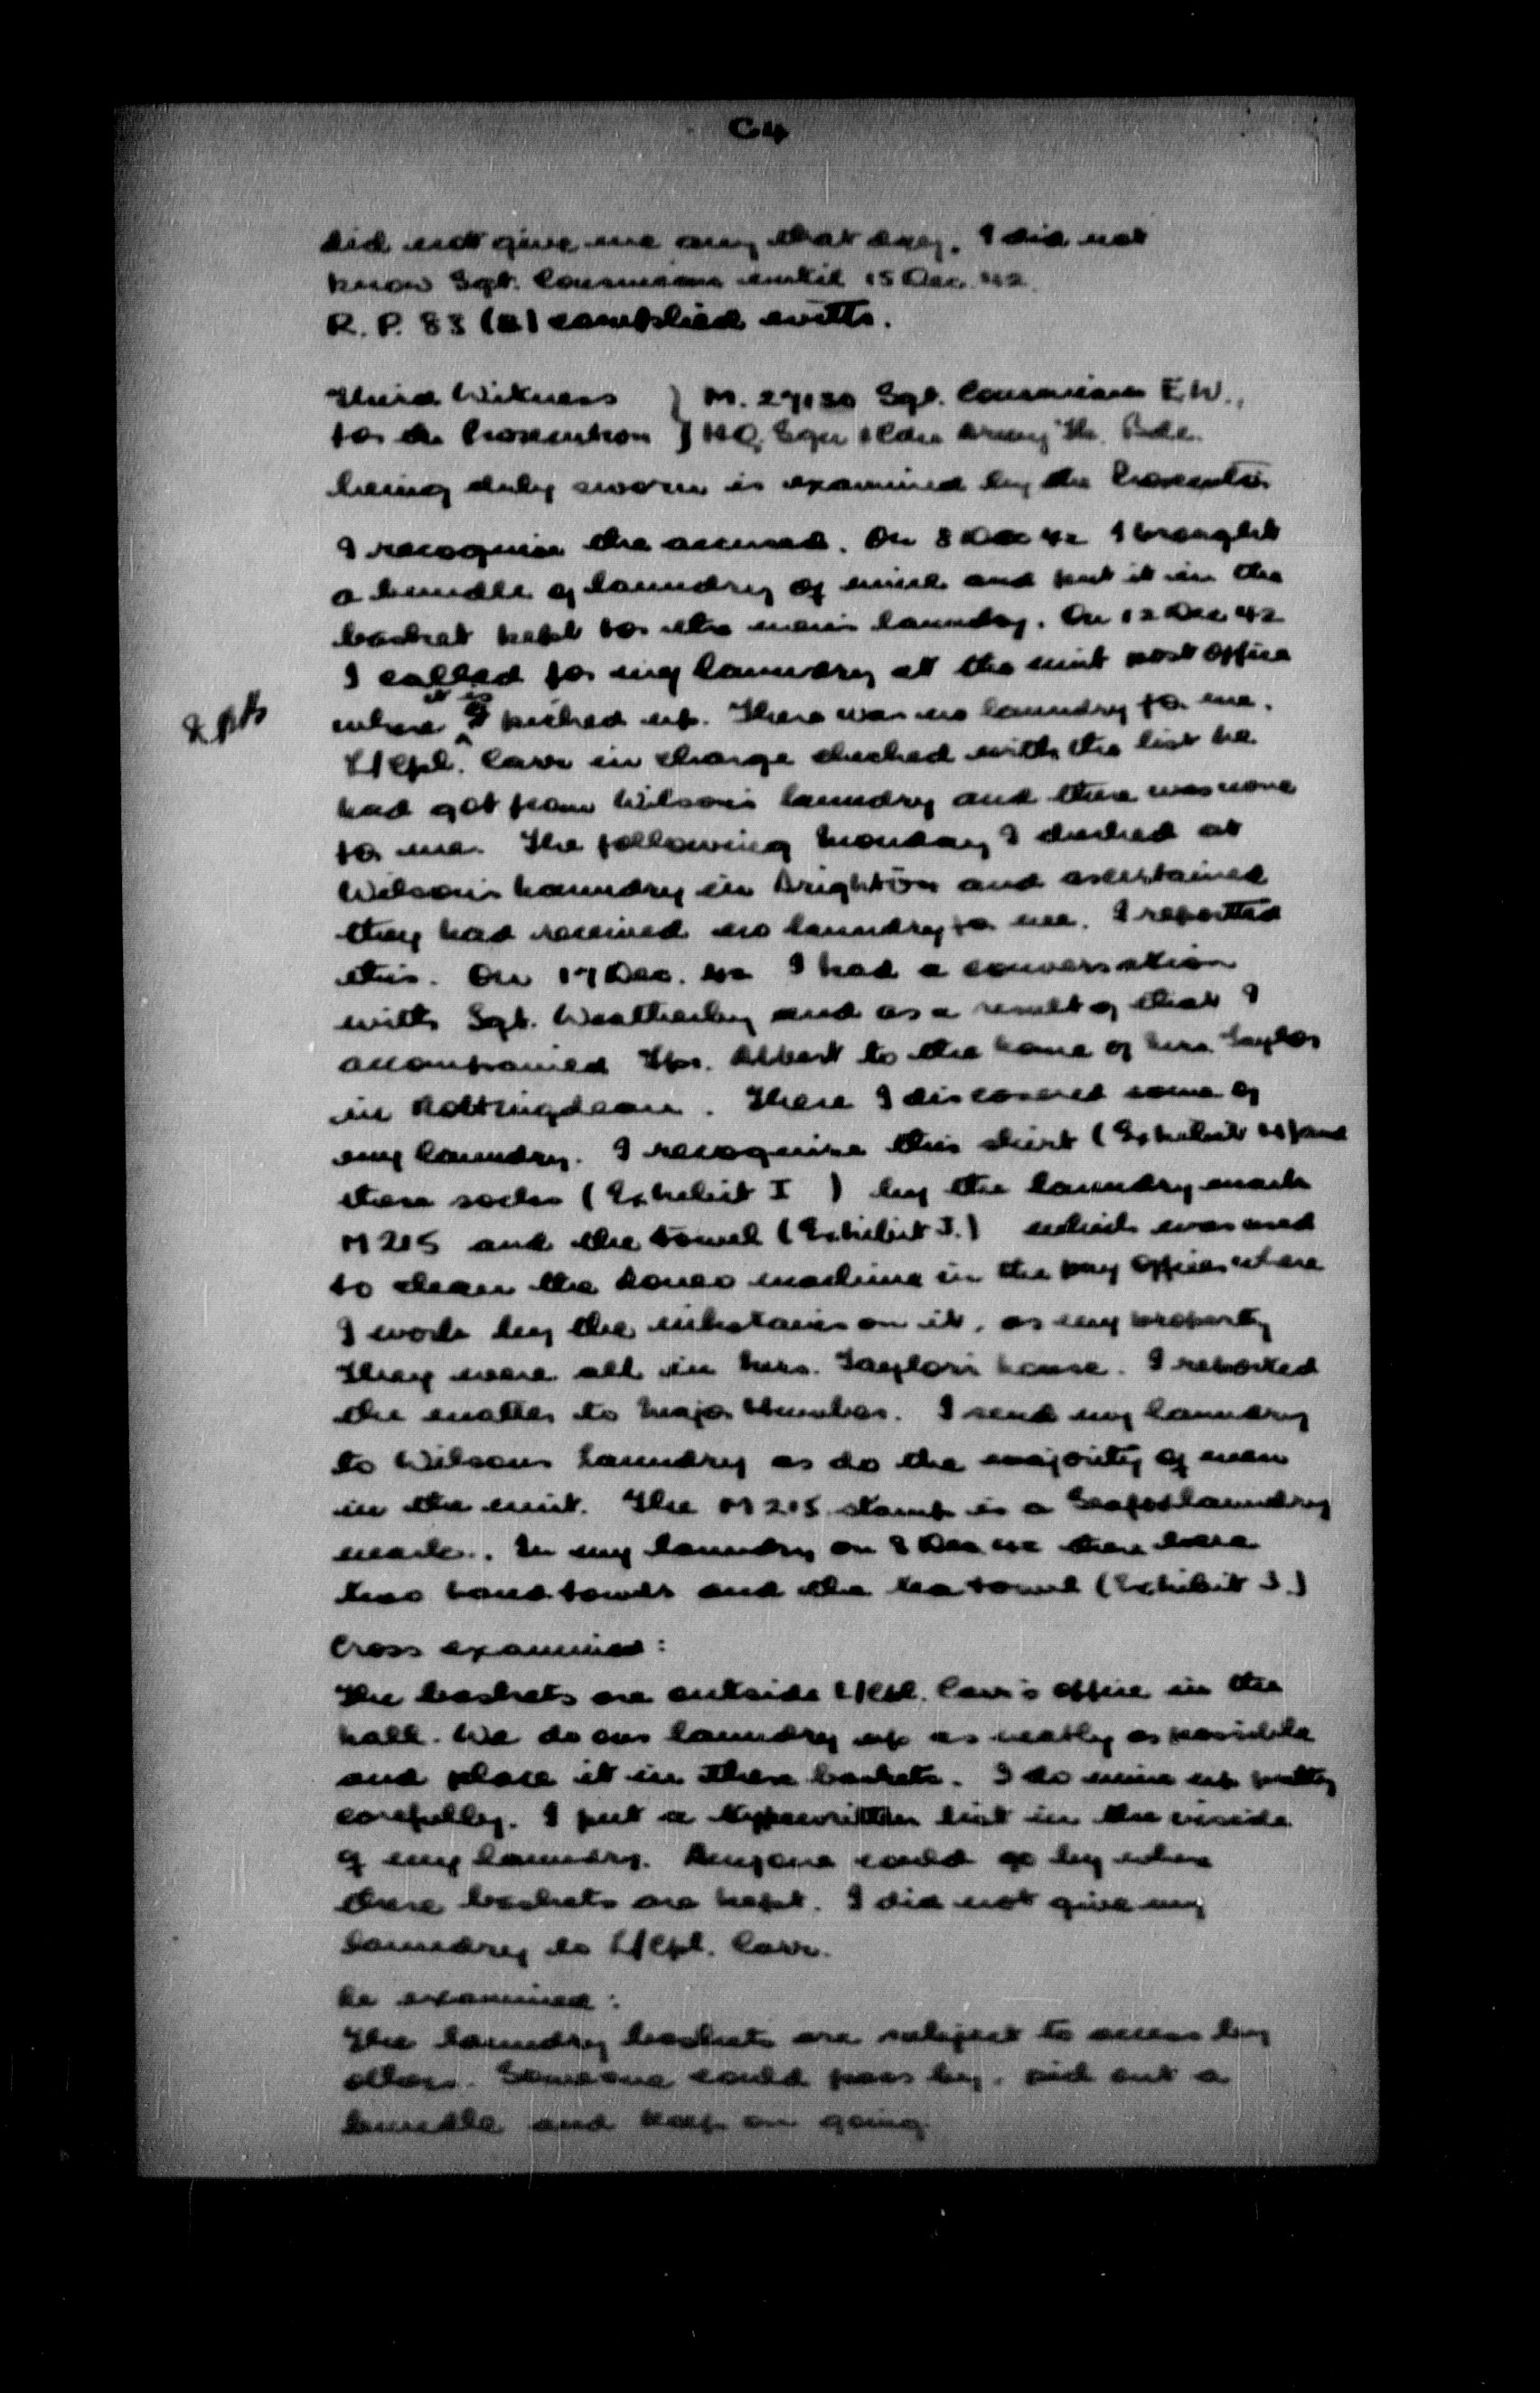 C4
did not give me any that day. I did not
know Sgt. until 15 Dec. 42.
R. P. 83 (B) complied with.
Third Witness } M. 27130 Sgt. E.W.,
for the Prosecution } HQ, 1 Cdn Army Tk. Bde.
being duly sworn is examined by the Prosecutor
I recognise the accused. On 8 Dec 42 I brought
a bundle of laundry of mine and put it in the
basket kept for the men's laundry. On 12 Dec 42
I called for my laundry at the unit post office
where it is picked up. There was no laundry for me.
L/Cpl. Carr in charge checked with the list he
had got from Wilson's laundry and there was none
for me. The following Monday I checked at
Wilson's Laundry in Brighton and ascertained
they had received no laundry for me. I reported
this. On 17 Dec. 42 I had a conversation
with Sgt. Weatherby and as a result of that I
accompanied Tpr. Albert to the home of Mrs. Taylor
in Rottingdean. There I discovered some of
my laundry. I recognise this shirt (Exhibit H) and
these socks (Exhibit I ) by the laundry mark
M215 and the towel (Exhibit J.) which was used
to clean the machine in the pay office where
I work by the inkstains on it, as my property
They were all in Mrs. Taylor's house. I reported
the matter to Major. I send my laundry
to Wilsons Laundry as do the majority of men
in the unit. The M 215 stamp is a laundry
mark. In my laundry on 8 Dec 42 there were
two hand towels and the tea towel (Exhibit J.)
Cross examined:
The baskets are outside L/Cpl. Carr's office in the
hall. We do our laundry up as neatly as possible
and place it in these baskets. I do mine up pretty
carefully. I put a typewritten list in the inside
of my laundry. Anyone could go by where
these baskets are kept. I did not give my
laundry to L/Cpl. Carr.
Re examined:
The laundry baskets are subject to access by
others. Someone could pass by, pick out a
bundle and keep on going.